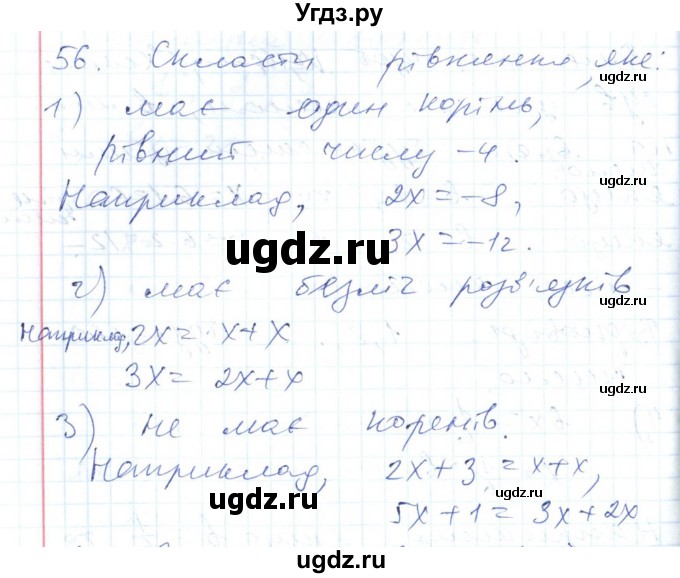 Угдз.ру
56. Скласти рівняння, яке:
1) має один корінь,
рівний числу -4.
Наприклад, 2x = -8,
3x = -12.
2) має безліч розв'язків
Наприклад, 2x = x + x
3x = 2x + x
3) не має коренів.
Наприклад, 2x + 3 = x + x,
5x + 1 = 3x + 2x
ugdz.ru
ugdz.ru
ugdz.ru
ugdz.ru
ugdz.ru
ugdz.ru
ugdz.ru
ugdz.ru